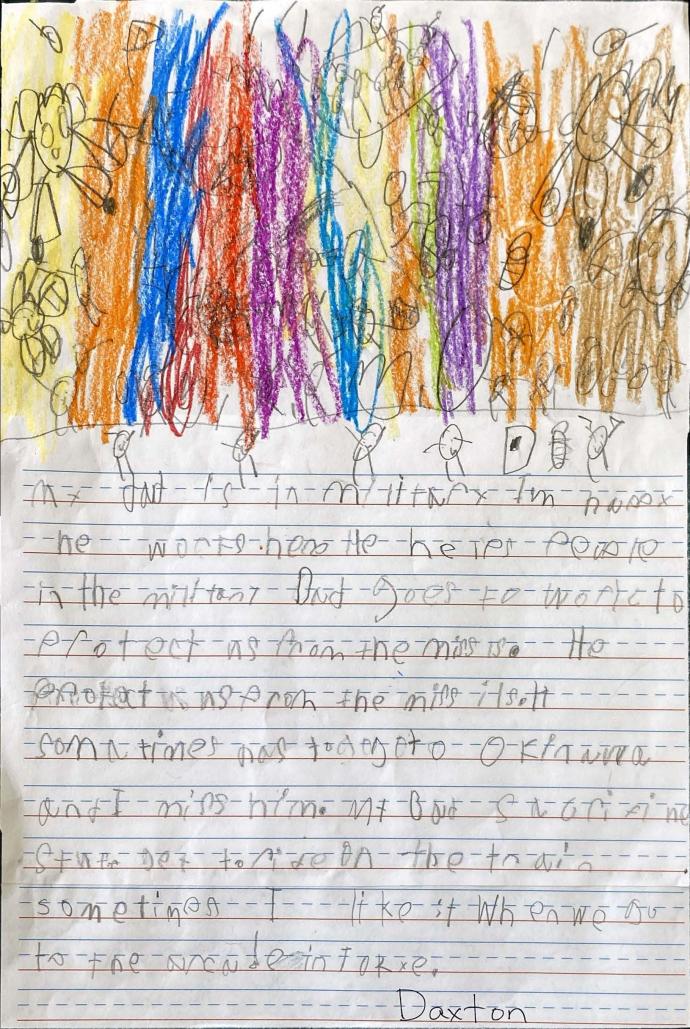 my dad is in military Im happy
he works here He helps people
in the military Dad goes to work to
protect us from the missis. He
protect us from the missils. H
somatimes has to to go to Okinawa
and I miss him. My Dad
get to ride on the train
sometimes I like it When we go
to the arcade in Tokye.
Daxton